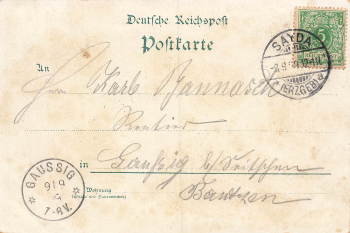 Deutsche Reichspost
Postkarte
SAYDA
(ERZGEB)
An
Herrn Karl Jannasch
Rentier
in Gaußig b/ Seitschen
Wohnung
Bautzen
GAUSSIG
9/6
7-8V.
5